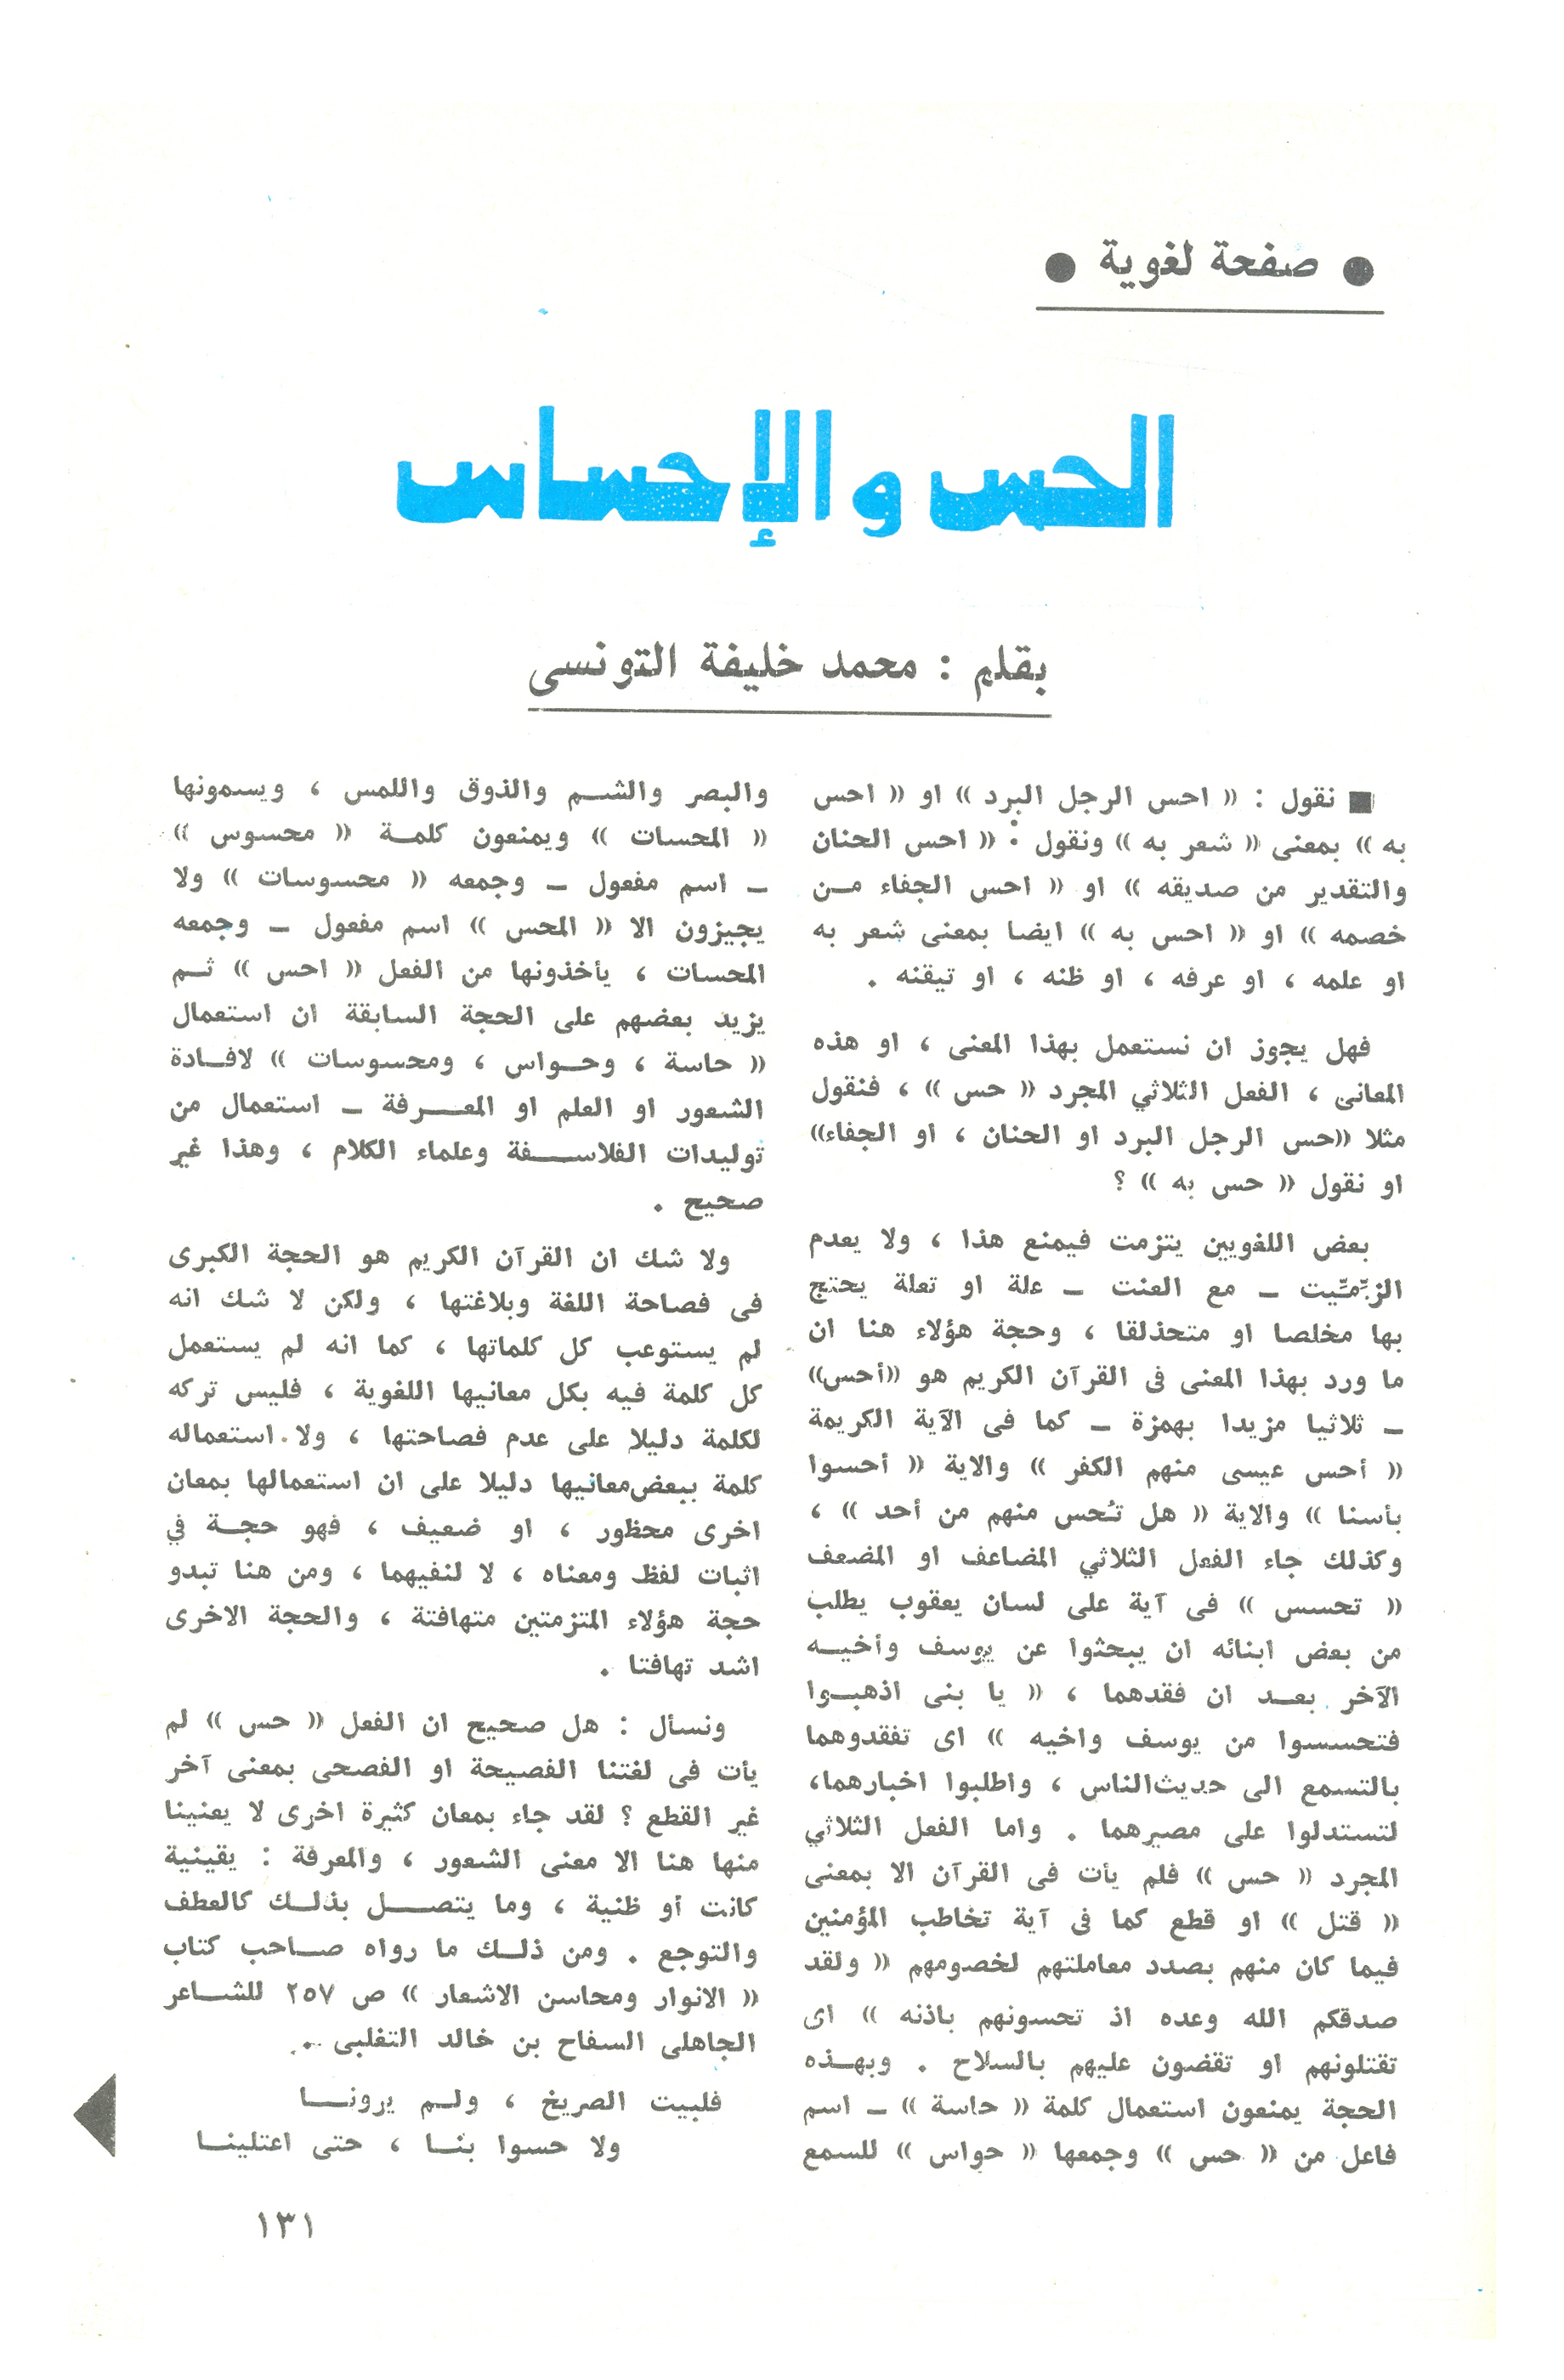 ● صفحة لغوية ●
الحس والإحساس
بقلم : محمد خليفة التونسى
■ نقول : « احس الرجل البرد » او « احس
به » بمعنى « شعر به » ونقول : « احس الحنان
والتقدير من صديقه » او « احس الجفاء مـن
خصمه » او « احس به » ايضا بمعنى شعر به
او علمه ، او عرفه ، او ظنه ، او تيقنه .
فهل يجوز ان نستعمل بهذا المعنى ، او هذه
المعانى ، الفعل الثلاثي المجرد « حس » ، فنقول
مثلا «حس الرجل البرد او الحنان ، او الجفاء»
او نقول « حس به » ؟
بعض اللغويين يتزمت فيمنع هذا ، ولا يعدم
الزِّمِّيت ـ مع العنت ـ علة او تعلة يحتج
بها مخلصا او متحذلقا ، وحجة هؤلاء هنا ان
ما ورد بهذا المعنى فى القرآن الكريم هو «أحس»
ـ ثلاثيا مزيدا بهمزة ـ كما فى الآية الكريمة
« أحس عيسى منهم الكفر » والاية « أحسوا
بأسنا » والاية « هل تُحس منهم من أحد » ،
وكذلك جاء الفعل الثلاثي المضاعف او المضعف
« تحسس » فى آية على لسان يعقوب يطلب
من بعض ابنائه ان يبحثوا عن يوسف وأخيـه
الآخر بعـد ان فقدهما ، « يا بنى اذهبـوا
فتحسسوا من يوسف واخيه » اى تفقدوهما
بالتسمع الى حديث الناس ، واطلبوا اخبارهما،
لتستدلوا على مصيرهما . واما الفعل الثلاثي
المجرد « حس » فلم يأت فى القرآن الا بمعنى
« قتل » او قطع كما فى آية تخاطب المؤمنين
فيما كان منهم بصدد معاملتهم لخصومهم « ولقد
صدقكم الله وعده اذ تحسونهم باذنه » اى
تقتلونهم او تقضون عليهم بالسلاح . وبهـذه
الحجة يمنعون استعمال كلمة « حاسة » ـ اسم
فاعل من « حس » وجمعها « حواس » للسمع
والبصر والشـم والذوق واللمس ، ويسمونها
« المحسات » ويمنعون كلمـة « محسوس »
ـ اسم مفعول ـ وجمعه « محسوسات » ولا
يجيزون الا « المحس » اسم مفعول ـ وجمعه
المحسات ، يأخذونها من الفعل « احس » ثـم
يزيد بعضهم على الحجة السابقة ان استعمال
« حاسة ، وحـواس ، ومحسوسات » لافـادة
الشعور او العلم او المعـرفة ـ استعمال من
توليدات الفلاسـفة وعلماء الكلام ، وهذا غير
صحيح .
ولا شك ان القرآن الكريم هو الحجة الكبرى
فى فصاحة اللغة وبلاغتها ، ولكن لا شك انه
لم يستوعب كل كلماتها ، كما انه لم يستعمل
كل كلمة فيه بكل معانيها اللغوية ، فليس تركه
لكلمة دليلا على عدم فصاحتها ، ولا استعماله
كلمة ببعض معانيها دليلا على ان استعمالها بمعان
اخرى محظور ، او ضعيف ، فهو حجـة في
اثبات لفظ ومعناه ، لا لنفيهما ، ومن هنا تبدو
حجة هؤلاء المتزمتين متهافتة ، والحجة الاخرى
اشد تهافتا .
ونسأل : هل صحيح ان الفعل « حس » لم
يأت فى لغتنا الفصيحة او الفصحى بمعنى آخر
غير القطع ؟ لقد جاء بمعان كثيرة اخرى لا يعنينا
منها هنا الا معنى الشعور ، والمعرفة : يقينية
كانت أو ظنية ، وما يتصـل بذلـك كالعطف
والتوجع . ومن ذلـك ما رواه صـاحب كتاب
« الانوار ومحاسن الاشعار » ص ٢٥٧ للشـاعر
الجاهلى السفاح بن خالد التغلبى .
فلبيت الصريخ ، ولـم يرونـا
ولا حسوا بنـا ، حتى اعتلينـا
١٣١